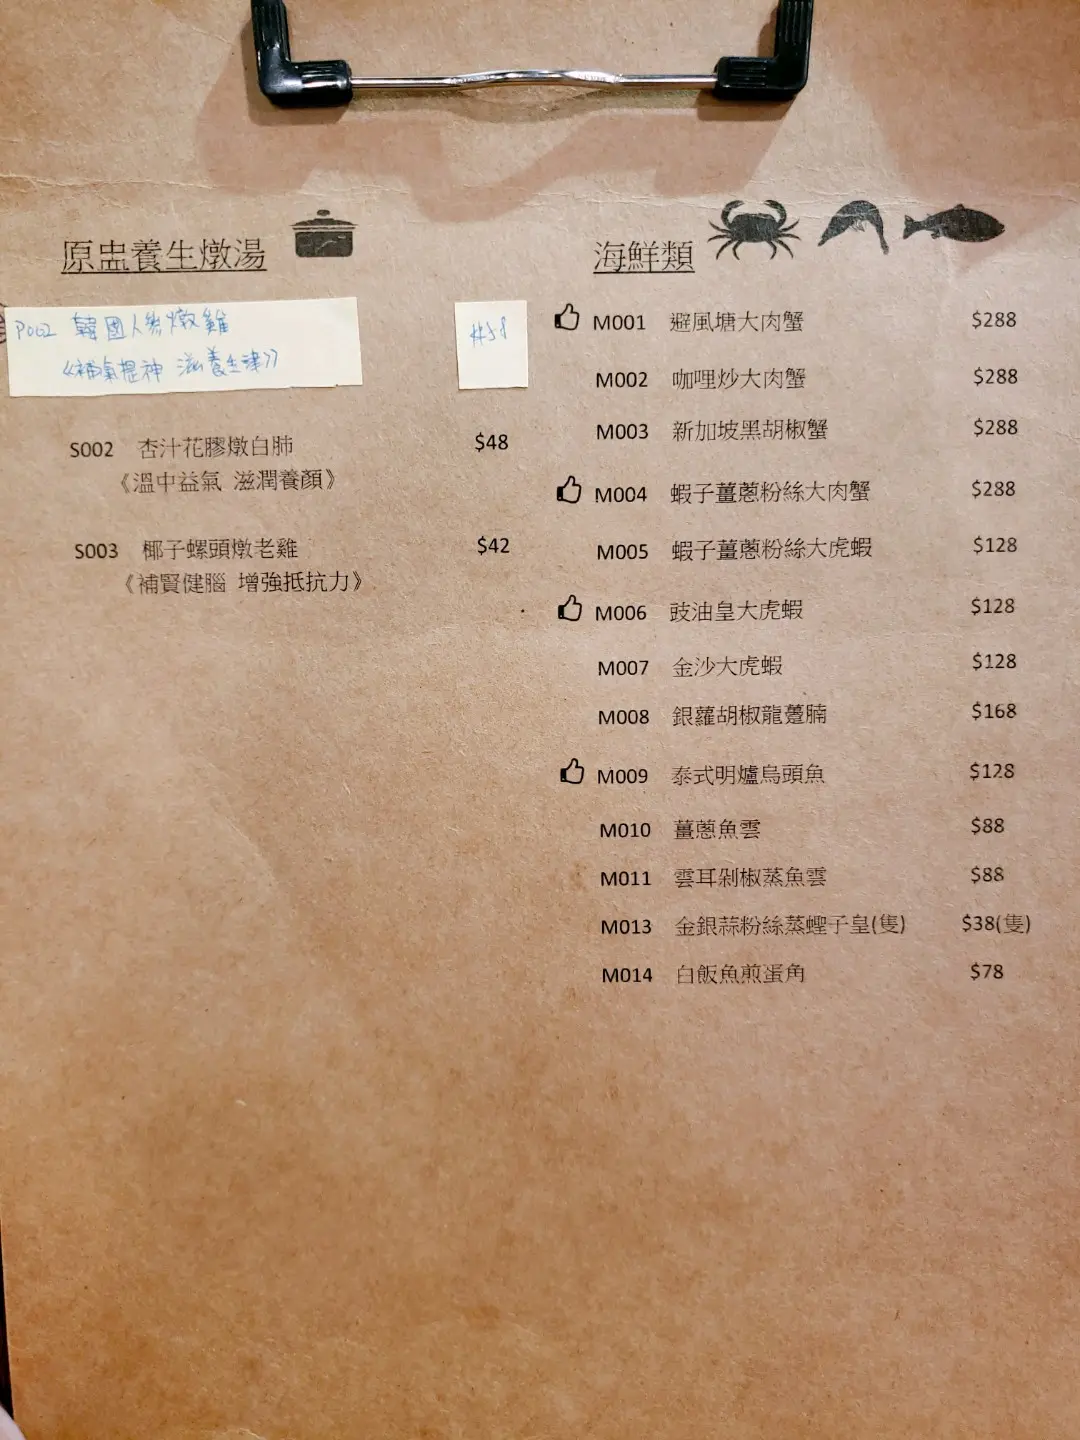 原盅養生燉湯
P002 韓國人參燉雞 $58
《補氣提神 滋養生津》
S002 杏汁花膠燉白肺 $48
《溫中益氣 滋潤養顏》
S003 椰子螺頭燉老雞 $42
《補腎健腦 增強抵抗力》
海鮮類
M001 避風塘大肉蟹 $288
M002 咖哩炒大肉蟹 $288
M003 新加坡黑胡椒蟹 $288
M004 蝦子薑蔥粉絲大肉蟹 $288
M005 蝦子薑蔥粉絲大虎蝦 $128
M006 豉油皇大虎蝦 $128
M007 金沙大虎蝦 $128
M008 銀蘿胡椒龍躉腩 $168
M009 泰式明爐烏頭魚 $128
M010 薑蔥魚雲 $88
M011 雲耳剁椒蒸魚雲 $88
M013 金銀蒜粉絲蒸蟶子皇(隻) $38(隻)
M014 白飯魚煎蛋角 $78